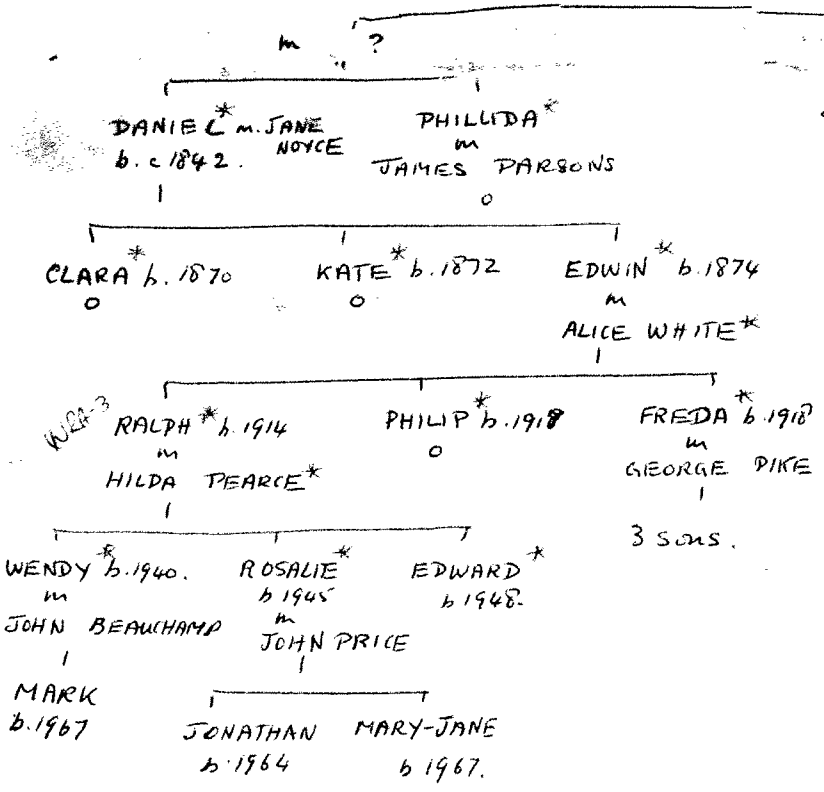 m ?
DANIEL* m. JANE NOYCE
b. c 1842.
PHILLIDA*
m
JAMES PARSONS
o
CLARA* b. 1870
o
KATE* b. 1872
o
EDWIN* b. 1874
m
ALICE WHITE*
RALPH* b. 1914
m
HILDA PEARCE*
PHILIP* b. 1918
o
FREDA* b. 1918
m
GEORGE PIKE
3 sons.
WENDY* b. 1940.
m
JOHN BEAUCHAMP
MARK
b. 1967
ROSALIE*
b 1945
m
JOHN PRICE
EDWARD*
b 1948.
JONATHAN
b. 1964
MARY-JANE
b 1967.